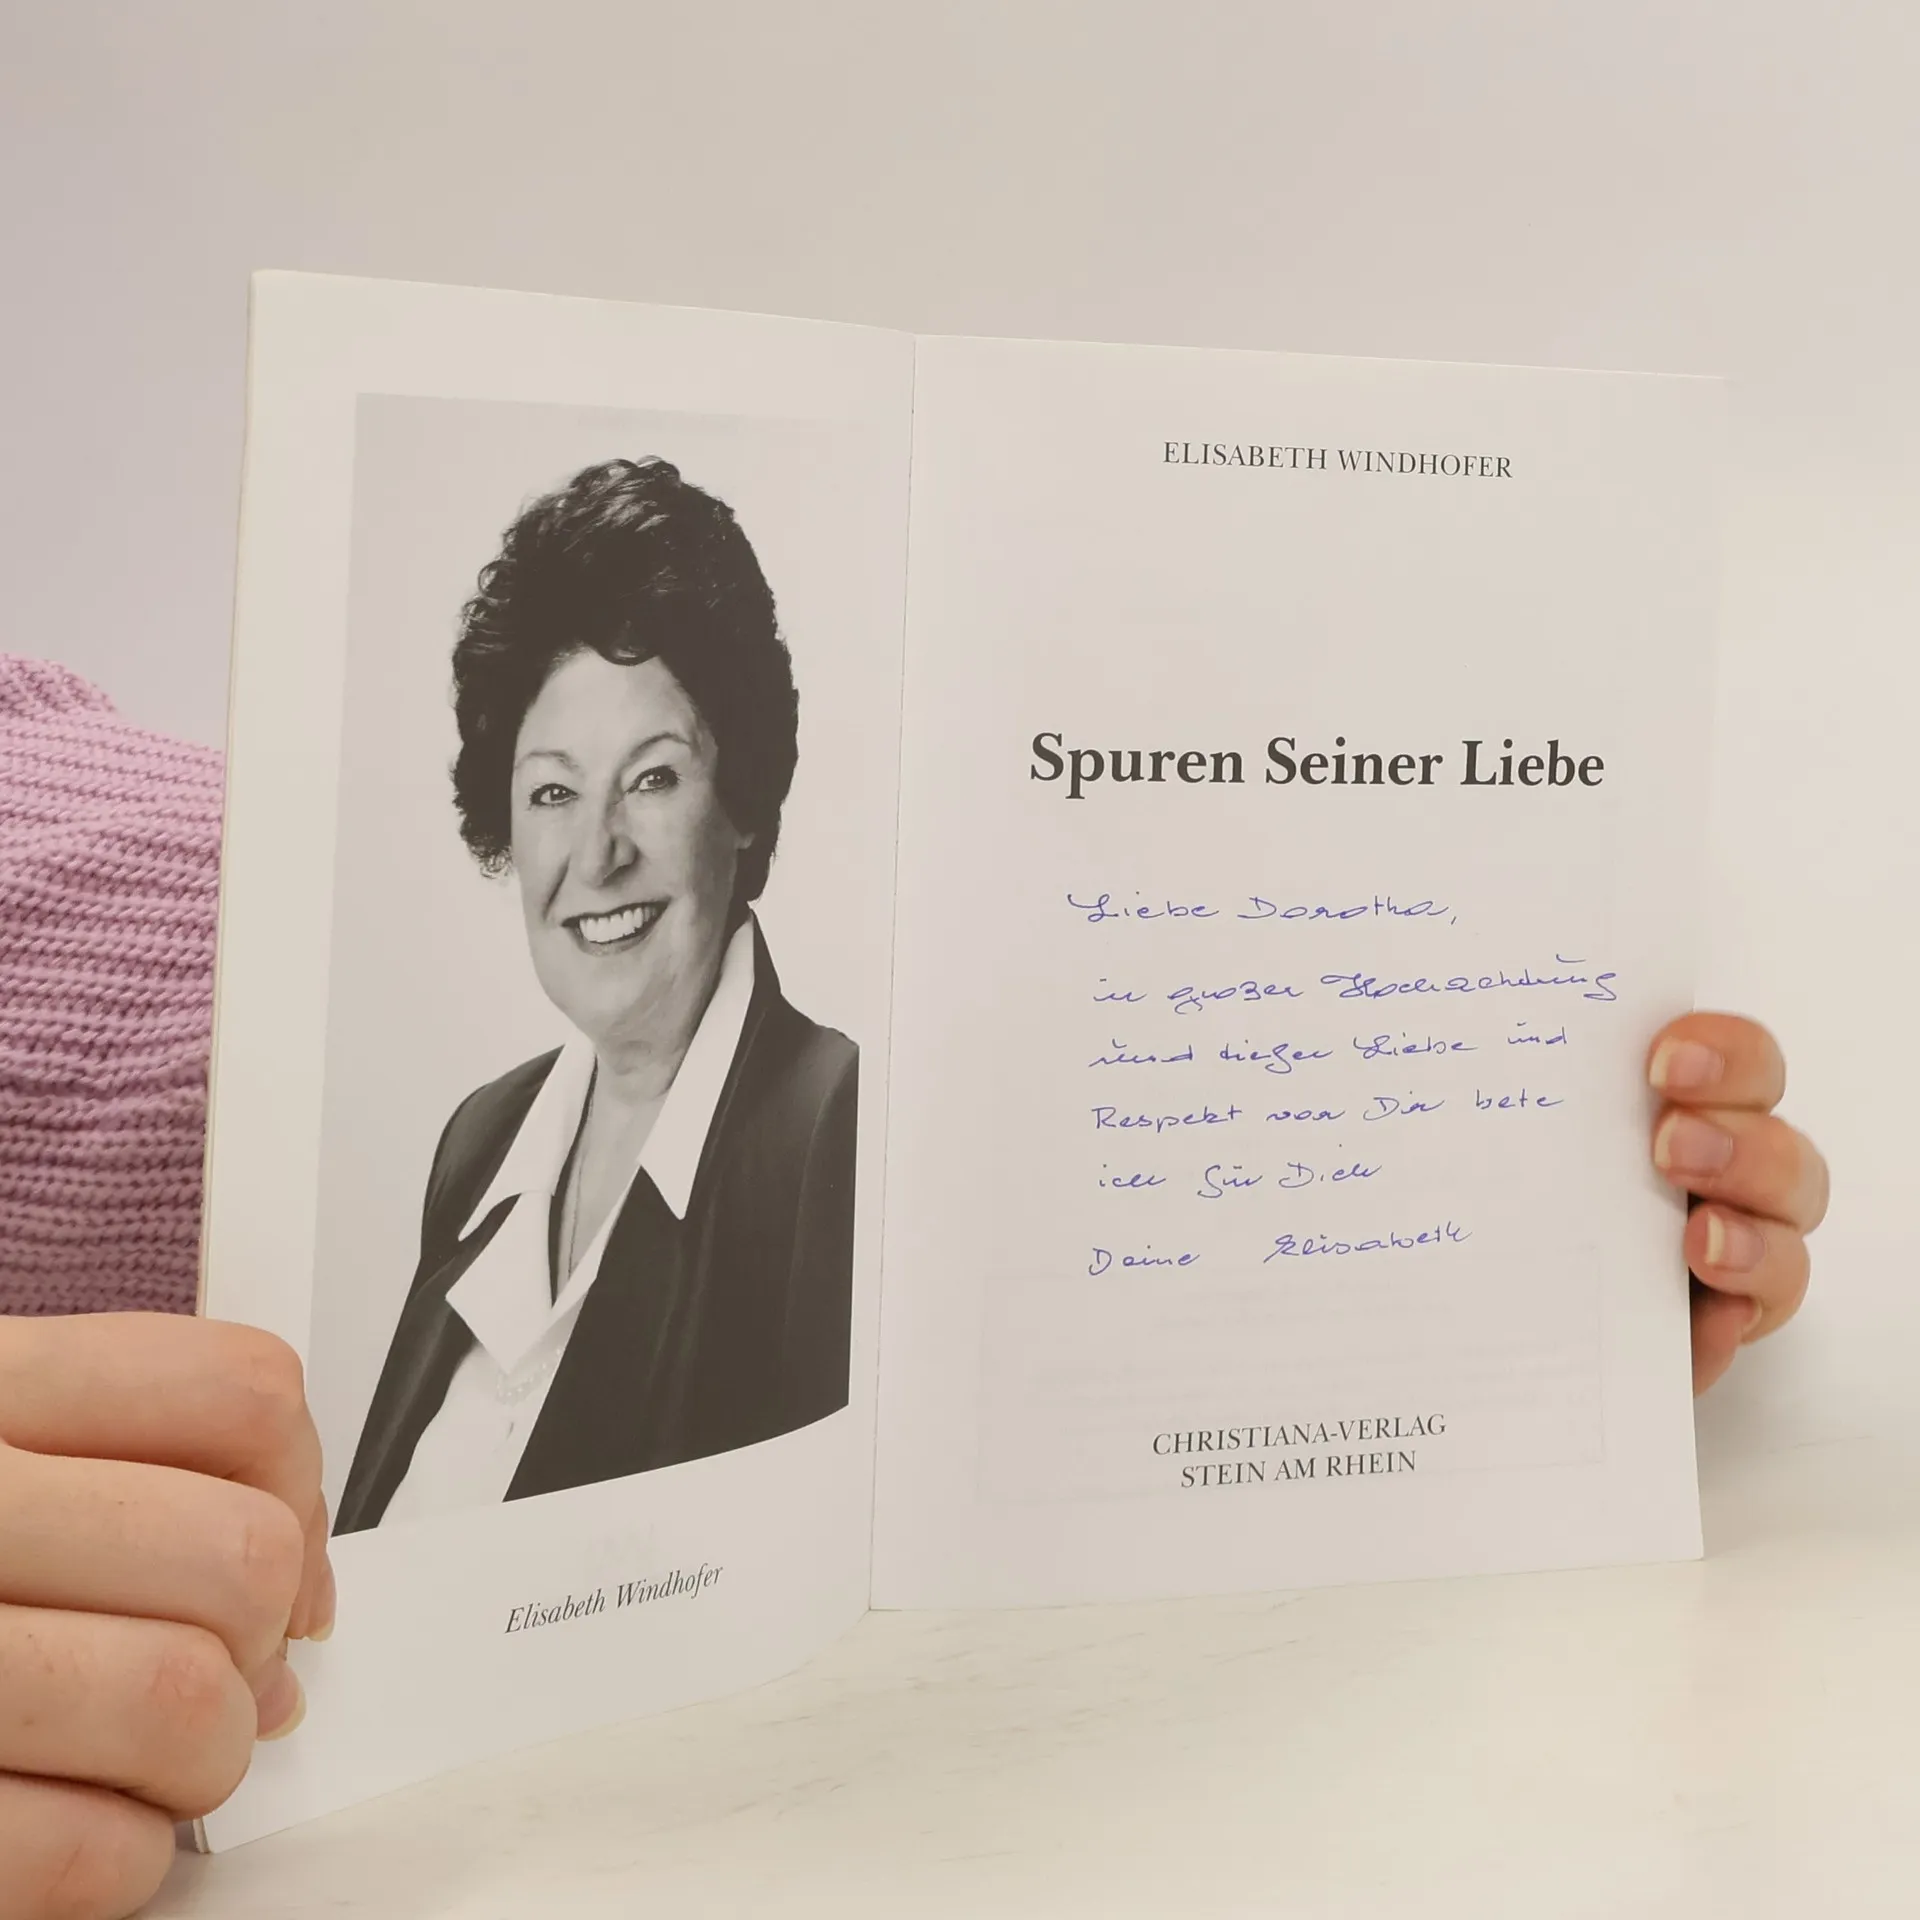 Elisabeth Windhofer
ELISABETH WINDHOFER
Spuren Seiner Liebe
Liebe Dorothea,
in großer Hochachtung
und tiefer Liebe und
Respekt vor Dir bete
ich für Dich
Deine Elisabeth
CHRISTIANA-VERLAG
STEIN AM RHEIN